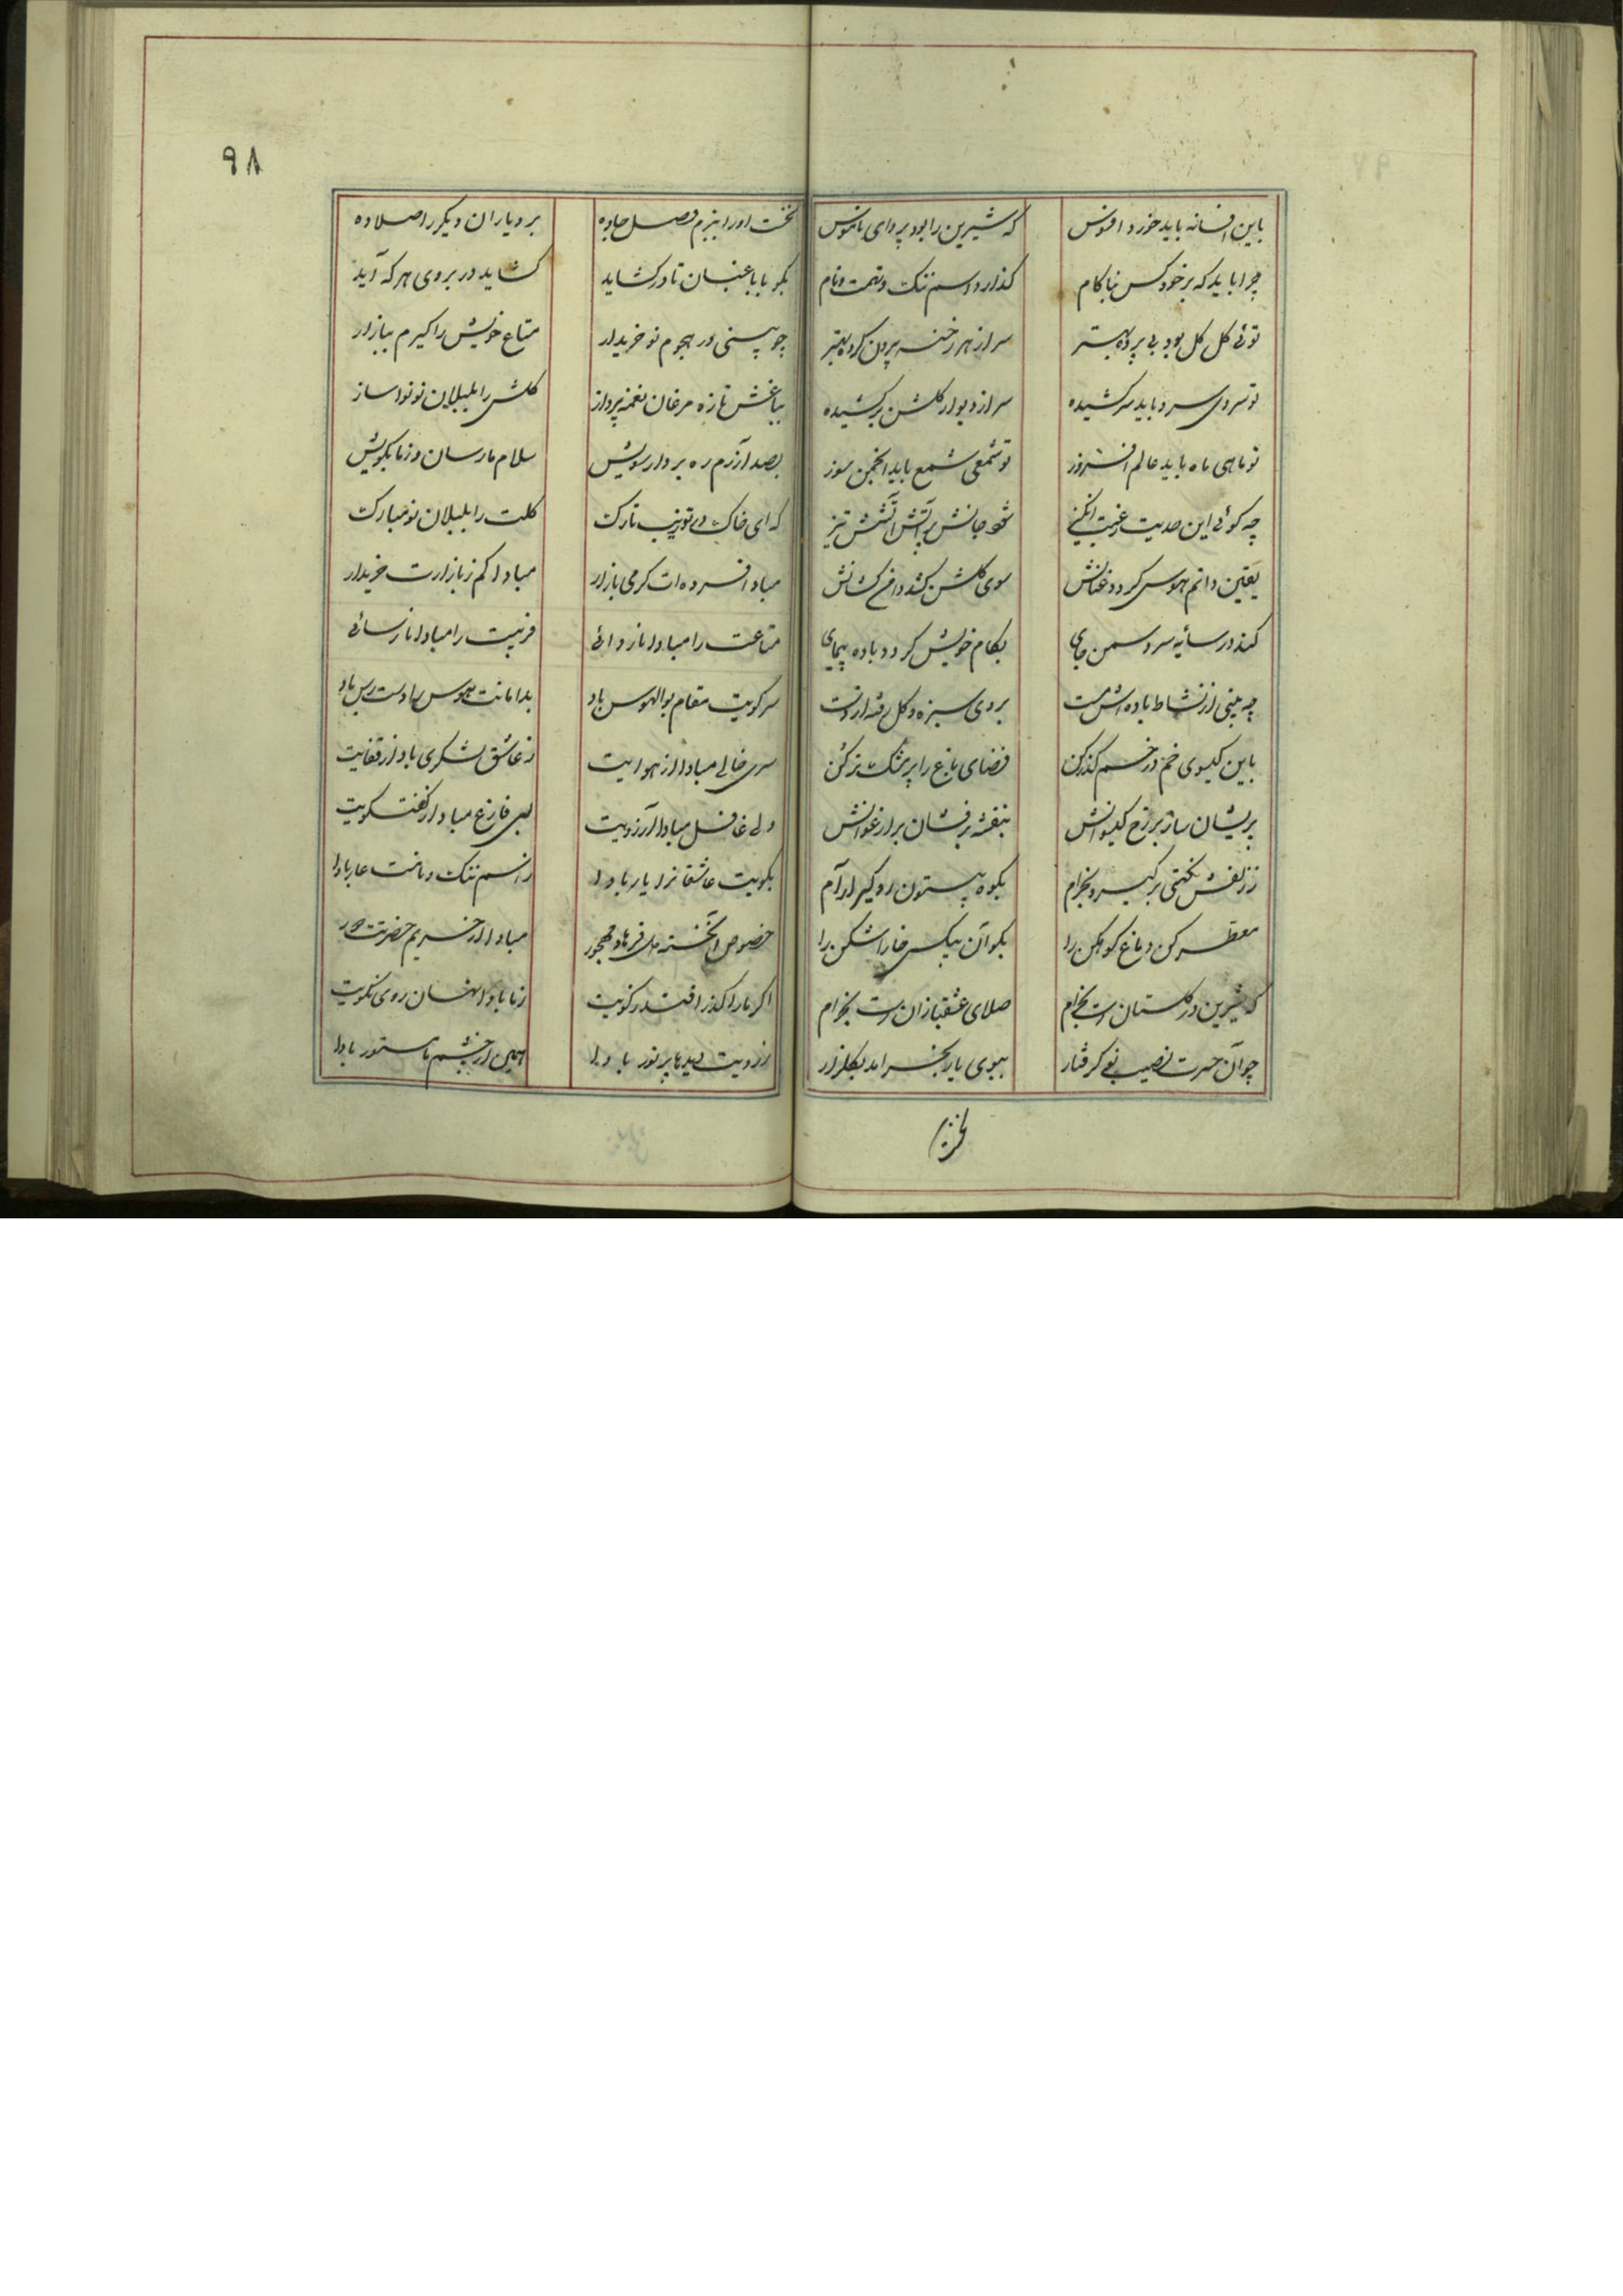 باین افسانه باید خورد افسوس
که شیرین را بود پروای ناموس
چرا باید که بر خود کس بناکام
گذارد اسم ننک و تهمت و نام
توئی کل کل بود بی پرده بهتر
سر از هر رخنه بیرون کرده بهتر
تو سروی سرو باید سرکشیده
سر از دیوار کلشن برکشیده
تو ماهی ماه باید عالم افروز
تو شمعی شمع باید انجمن سوز
چه کوئی این حدیث رغبت انکیز
شود جانش بر آتش آتشش تیز
یقین دانم هوس کردد عنانش
سوی کلشن کشد دامن کشانش
کند در سایه سرو سمن جای
بکام خویش کردد باده پیمای
چه بینی از نشاط باده اش مست
بروی سبزه و کل رفته از دست
باین کیسوی خم در خم کذر کن
فضای باغ را پر مشک تر کن
پریشان ساز بر رخ کیسوانش
بنفشه برفشان بر ارغوانش
ز زلفش نکهتی برکیر و بخرام
بکوه بیستون رو کیر آرام
معطر کن دماغ کوهکن را
بکو آن پیکر خارا شکن را
که شیرین در کلستان است بخرام
صلای عشقبازان است بخرام
چو آن حسرت نصیب نو کرفتار
ببوی یار بخرامد بکلزار
98
نخست او را ببزم وصل جا ده
بر دیاران دیکر را صلا ده
بکو با باغبان تا در کشاید
کشاید در بروی هر که آید
چو بینی در هجوم نو خریدار
متاع خویش را کیرم ببازار
بباغش تازه مرغان نغمه پرداز
کلش را بلبلان نو نوا ساز
بصد آزرم ره بردار سویش
سلام ما رسان و ز ما بکویش
که ای خاک در تو زیب تارک
کلت را بلبلان نو مبارک
مباد افسرده ات کرمی بازار
مبادا کم ز بازارت خریدار
متاعت را مبادا ناروائی
فریبت را مبادا نارسائی
سر کویت مقام بوالهوس باد
بدامانت هوس را دست رس باد
سری خالی مبادا از هوایت
ز عاشق لشکری باد از قفایت
دلی غافل مبادا ز آرزویت
لبی فارغ مباد از کفتکویت
بکویت عاشقانرا یار بادا
ز اسم ننک و نامت عار بادا
خصوص آنخسته دل فرهاد مهجور
مبادا از حریم حضرتت دور
اکر ما را کذر افتد بکویت
ز ما بادا نهان روی نکویت
ز رویت دیدها پر نور بادا
همین از چشم ما مستور بادا